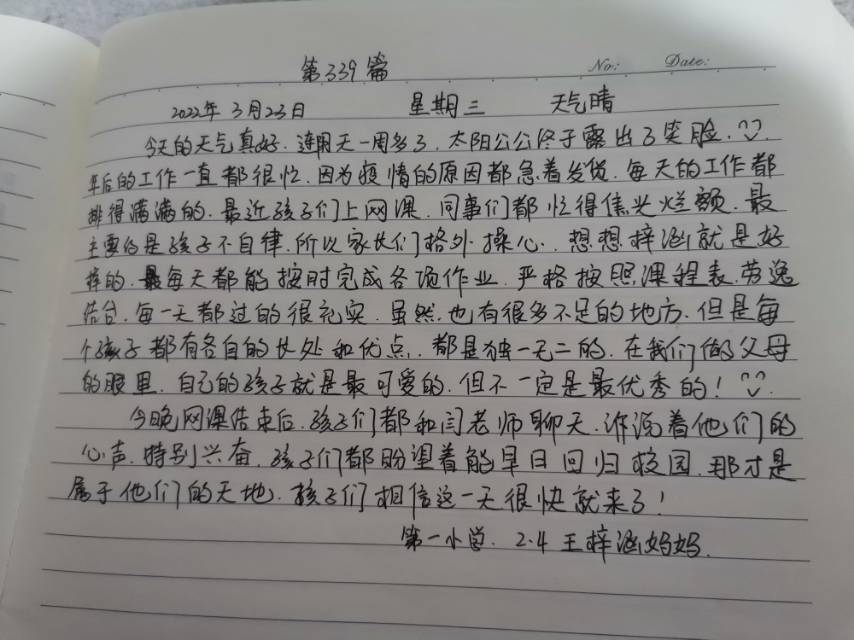 第339篇
No:
Date:
2022年3月23日 星期三 天气晴
今天的天气真好.连阴天一周多了.太阳公公终于露出了笑脸.
年后的工作一直都很忙.因为疫情的原因都急着发货.每天的工作都
排得满满的.最近孩子们上网课.同事们都忙得焦头烂额.最
主要的是孩子不自律.所以家长们格外操心.想想梓涵就是好
样的.每天都能按时完成各项作业.严格按照课程表.劳逸
结合.每一天都过的很充实.虽然.也有很多不足的地方.但是每
个孩子都有各自的长处和优点.都是独一无二的.在我们做父母
的眼里.自己的孩子就是最可爱的.但不一定是最优秀的!
今晚网课结束后.孩子们都和闫老师聊天.诉说着他们的
心声.特别兴奋.孩子们都盼望着能早日回归校园.那才是
属于他们的天地.孩子们相信这一天很快就来了!
第一小学.2.4王梓涵妈妈.